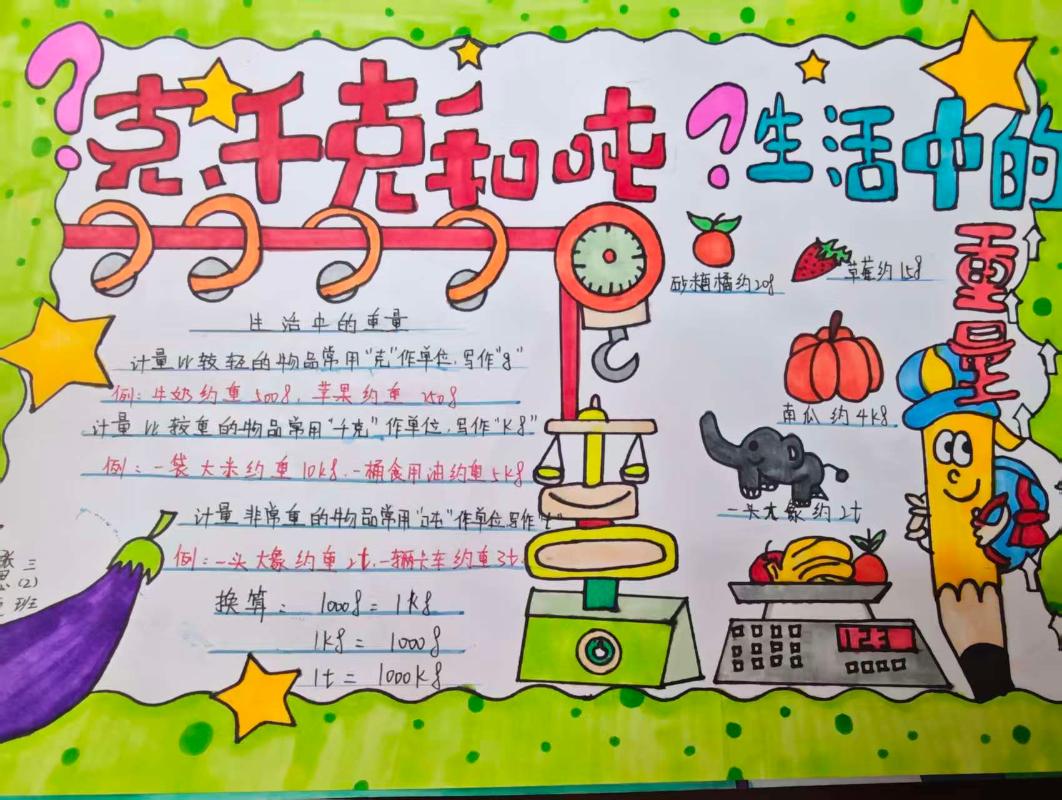 克、千克和吨
生活中的
重量
砂糖橘约20g
草莓约15g
南瓜约4kg
一头大象约2t
123
生活中的重量
计量比较轻的物品常用"克"作单位,写作"g"
例:牛奶约重500g,苹果约重250g
计量比较重的物品常用"千克"作单位,写作"kg"
例:一袋大米约重10kg,一桶食用油约重5kg
计量非常重的物品常用"吨"作单位写作"t"
例:一头大象约重2t,一辆卡车约重3t.
换算: 1000g=1kg
1kg=1000g
1t=1000kg
张
三
(2)
班